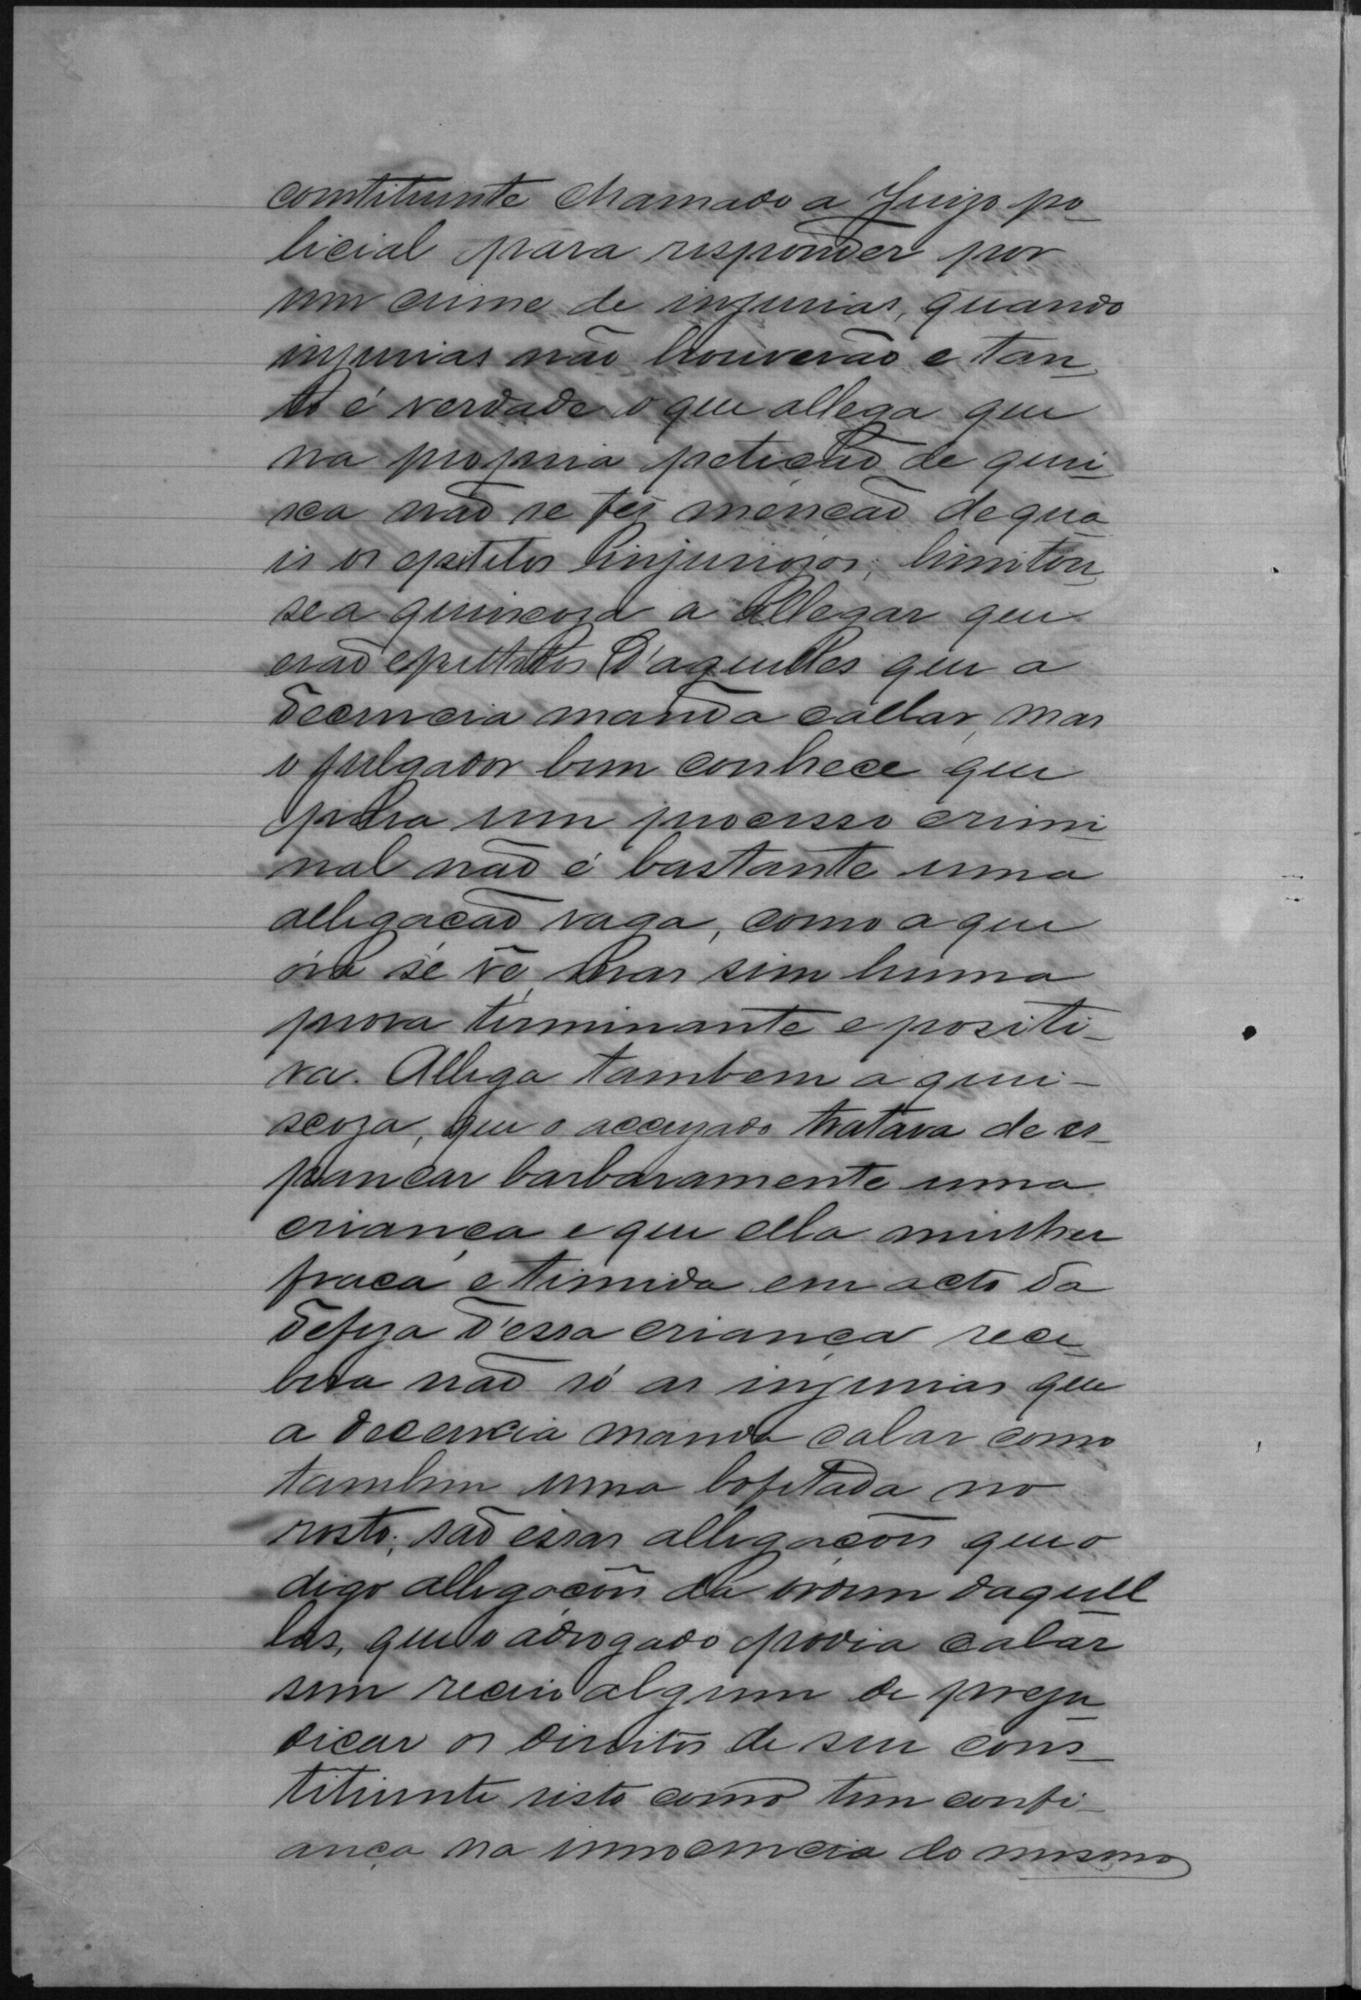 constituinte chamado a Juizo po-
licial para responder por
um crime de injurias, quando
injurias não houverão e tan-
to é verdade o que allega que
na propria petição de quei-
xa não se fez menção de qua-
is os epitetos injuriosos; limitou-
se a queixosa a allegar que
erão epithetos d'aquelles que a
decencia manda callar, mas
o julgador bem conhece que
para um processo crimi-
nal não é bastante uma
allegacão vaga, como a que
óra se vê, mas sim huma
prova terminante e positi-
va. Allega tambem a quei-
xoza, que o accuzado tratava de es-
pancar barbaramente uma
criança e que ella mulher
fraca e timida em acto da
defeza d'essa criança rece-
bera não só as injurias que
a decencia manda calar como
tambem uma bofetada no
rosto; são essas allegações que o
digo allegações da ordem daquel
las, que o advogado podia calar
sem receio algum de preju-
dicar os direitos de seu cons-
tituinte visto como tem confi-
ança na innocencia do mesmo